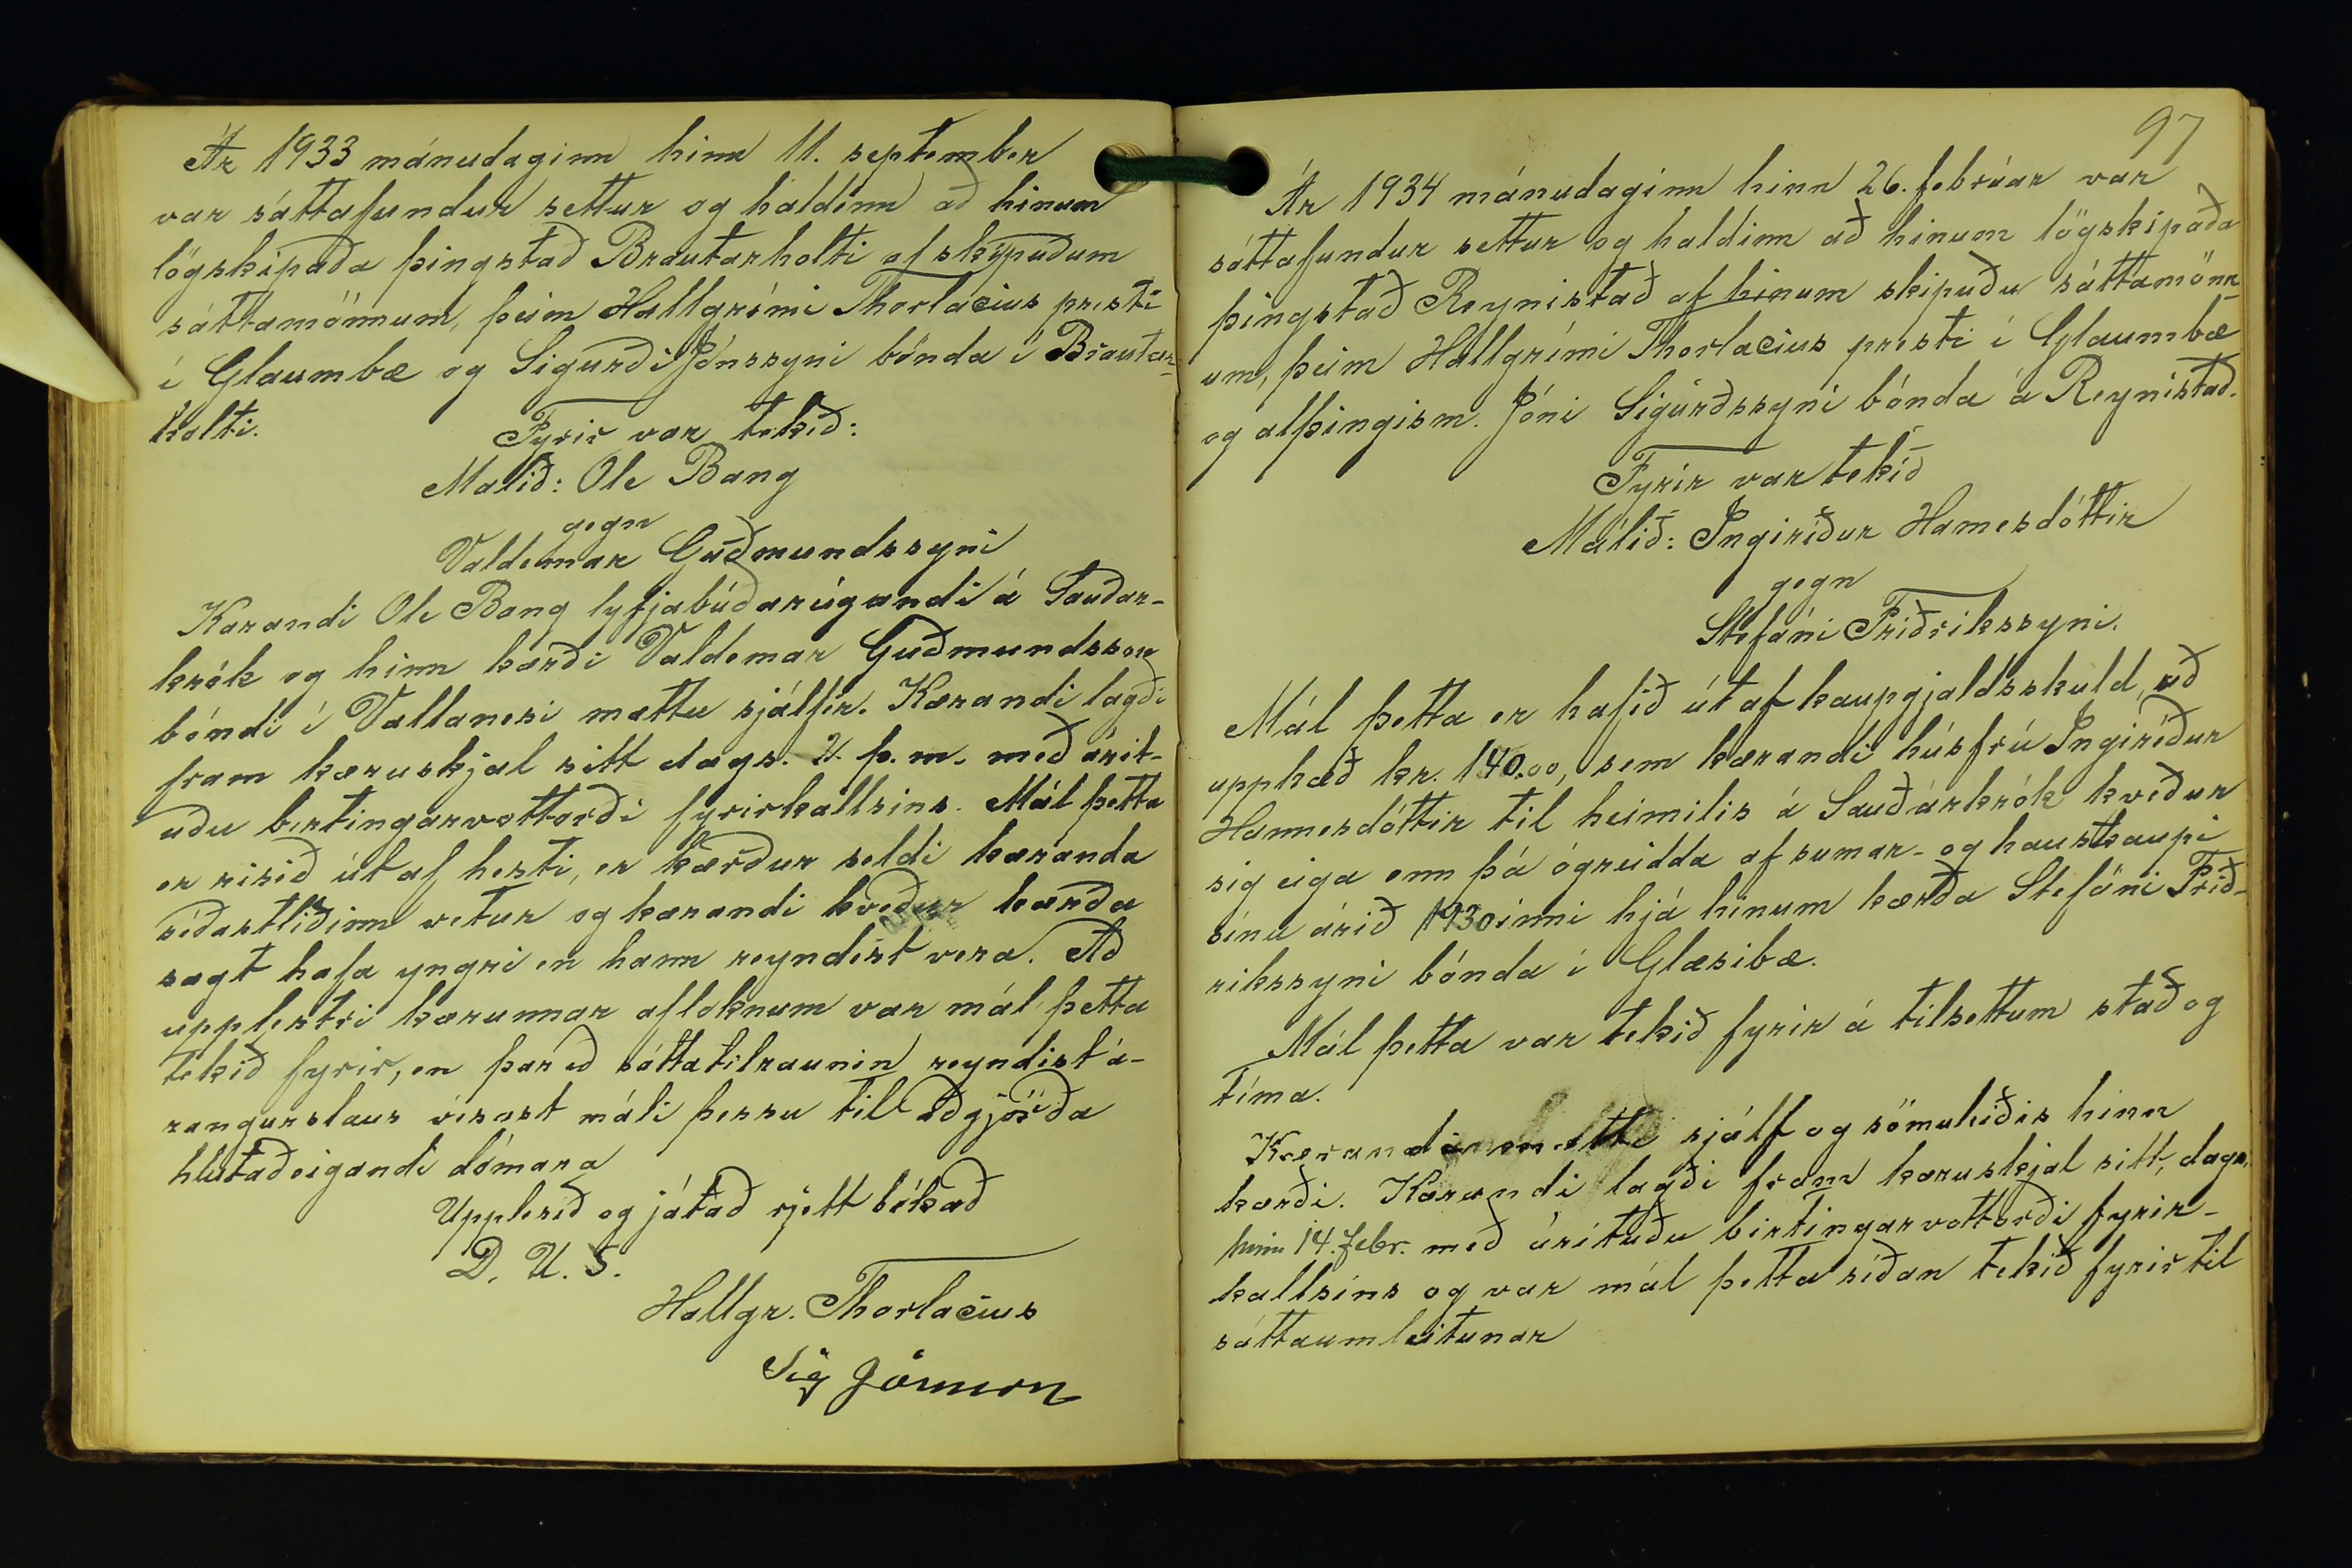 Ár 1933 mánudaginn hinn 11. september
var sáttafundur settur og haldinn að hinum
lögskipaða þingstað Brautarholti af skipuðum
sáttamönnum, þeim Hallgrími Thorlacius presti
í Glaumbæ og Sigurði Jónssyni bónda í Brautar-
holti.
Fyrir var tekið:
Málið: Ole Bang
gegn
Valdemar Guðmundssyni
Kærandi Ole Bang lyfjabúðareigandi á Sauðár-
krók og hinn kærði Valdemar Guðmundsson
bóndi í Vallanesi mættu sjálfir. Kærandi lagði
fram kæruskjal sitt dags. 2. þ.m. með árit-
uðu birtingarvottorði fyrirkallsins. Mál þetta
er risið út af hesti, er kærður seldi kæranda
síðastliðinn vetur og kærandi kveður kærða
sagt hafa yngri en hann reyndist vera. Að
upplestri kærunnar afloknum var mál þetta
tekið fyrir, en þar eð sáttatilraunin reyndist á-
rangurslaus vísast máli þessu til aðgjörða
hlutaðeigandi dómara
Upplesið og játað rjett bókað
D. U. S.
Hallgr. Thorlacius
Sig Jónsson
97
Ár 1934 mánudaginn hinn 26. febrúar var
sáttafundur settur og haldinn að hinum lögskipaða
þingstað Reynistað af hinum skipuðu sáttamönn-
um, þeim Hallgrími Thorlacius presti í Glaumbæ
og alþingism. Jóni Sigurðssyni bónda á Reynistað.
Fyrir var tekið
Málið: Ingiríður Hannesdóttir
gegn
Stefáni Friðrikssyni.
Mál þetta er hafið út af kaupgjaldsskuld, að
upphæð kr. 140.00, sem kærandi húsfrú Ingiríður
Hannesdóttir til heimilis á Sauðárkrók kveður
sig eiga enn þá ógreidda af sumar- og haustkaupi
sínu árið 1930 inni hjá hinum kærða Stefáni Frið-
rikssyni bónda í Glæsibæ.
Mál þetta var tekið fyrir á tilsettum stað og
tíma.
Kærandi mætti sjálf og sömuleiðis hinn
kærði. Kærandi lagði fram kæruskjal sitt, dags.
hinn 14. febr. með árituðu birtingarvottorði fyrir-
kallsins og var mál þetta síðan tekið fyrir til
sáttaumleitunar